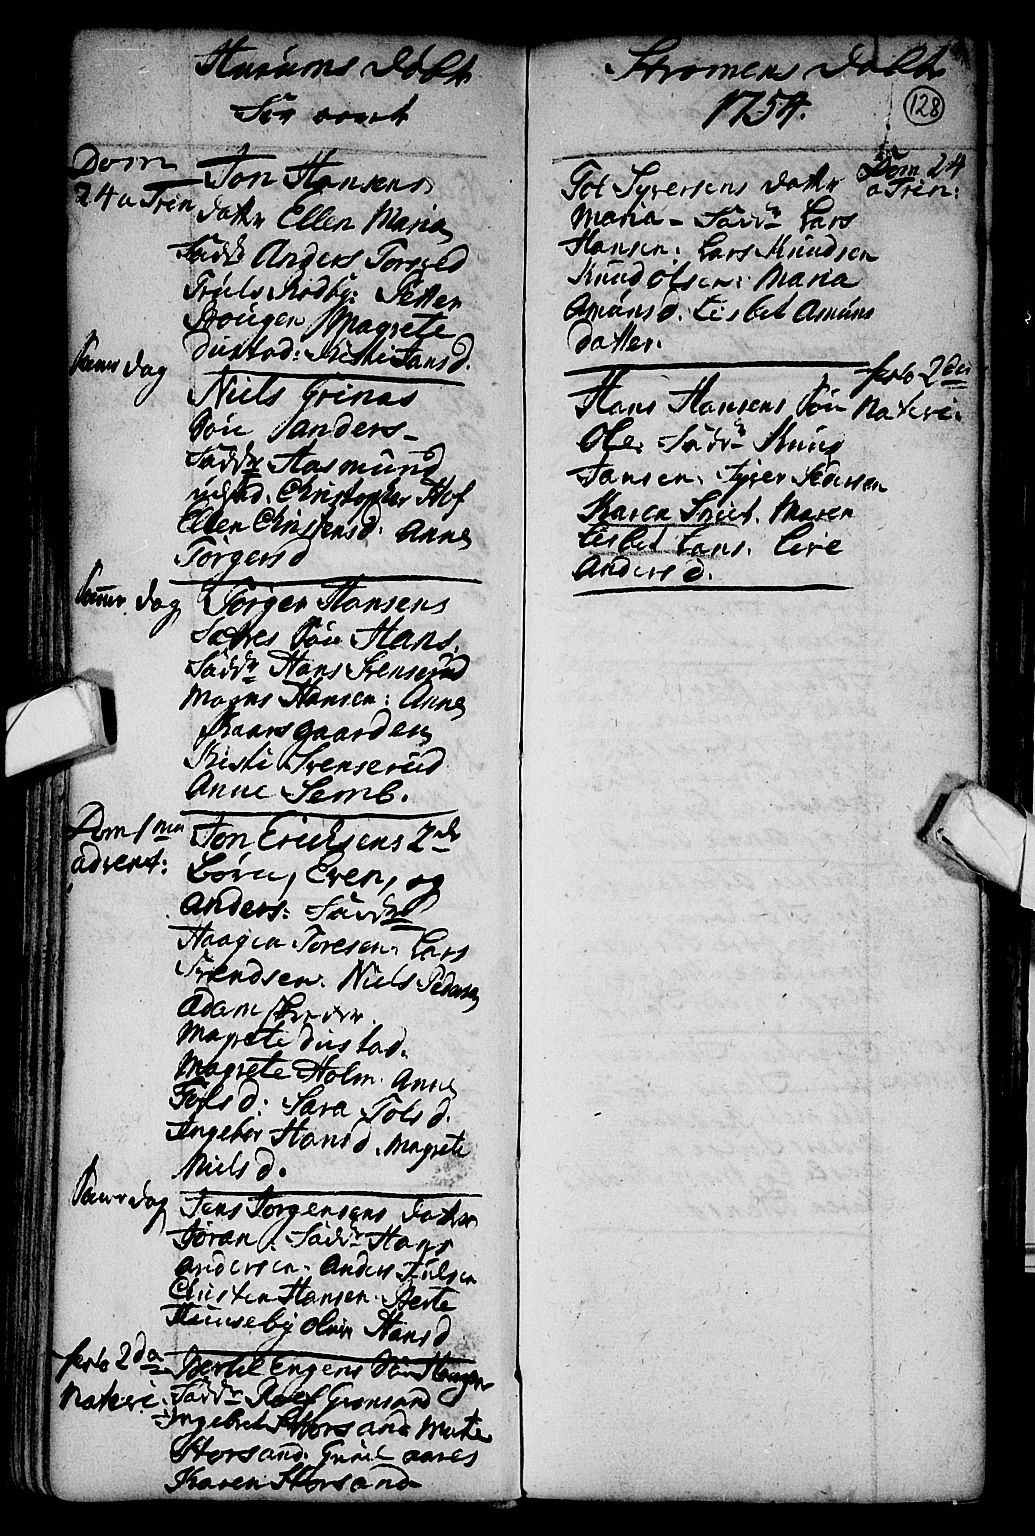 Hurums Døbt
Dom
24 a Trin
Jon Hansens
datter Ellen Maria
Fadd: Anders Torsrød
Truls Rødby: Petter
Hougen Magrete
dustad: Kisti Jansd.
samr dag
Niels Grinas
søn Anders
Fadd: Aasmund
Christopher Hof
Ellen Christensd. Anne
Torgersd
samr dag
Jørgen Hansens
Sætres søn Hans.
Fadd: Hans Svenserud
Magns Hansen: Anne
Kaarsgaarden
Kisti Svenserud
Anne Semb.
Dom 1ma
advent:
Jon Erichsens 2de
Børn, Even, og
Anders: Fadd:
Haagen Toresen. Lars
Svendsen. Niels Pedersen
Adam
Magrete dustad.
Magrete Holm. Anne
Tolsd: Sara Tolsd.
Ingebor Hansd. Magrete
Nielsd.
samr dag
Jens Jørgensens datter
Jøran. Fadd: Hans
Andersen. Anders Julsen
Christen Hansen. Berte
Huuseby Hansd
festo 2da
Nativi.
Bertil Engens søn Haagen
Fadd: Roef Grønsand
Ingebret Storsand Marte
Storsand. Guril aares
Karen Storsand
Strømens Døbt
1754.
128
Dom 24
a Trin:
Tol Syversens datter
Maria - Fadd: Lars
Hansen: Lars Knudsen
Knud Olsen: Maria
Amunsd. Lisbet Amuns
datter.
festo 2da
Nativi.
Hans Hansens søn
Ole. Fadd: Knud
Jansen. Syver Pedersen
Karen Maren
Lisbet Lars. Live
Andersd.